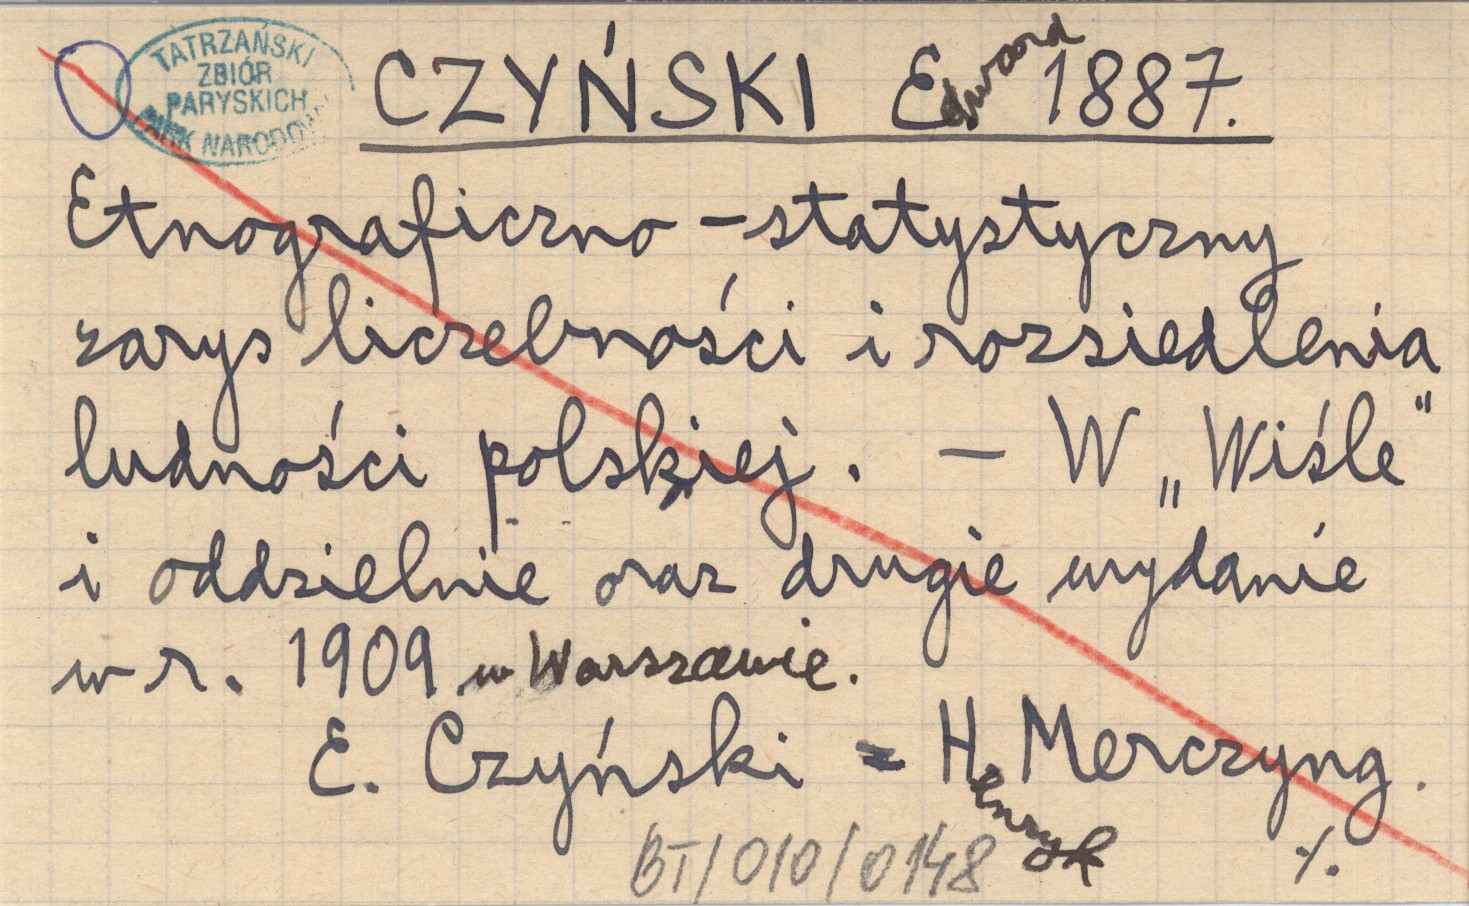 TATRZAŃSKI
ZBIÓR
PARYSKICH
PARK NARODOWY
CZYŃSKI Edward 1887.
Etnograficzno-statystyczny
zarys liczebności i rozsiedlenia
ludności polskiej. - W „Wiśle"
i oddzielnie oraz drugie wydanie
w r. 1909 w Warszawie.
E. Czyński = H. Merczyng.
enryk
BT/010/0148
%.